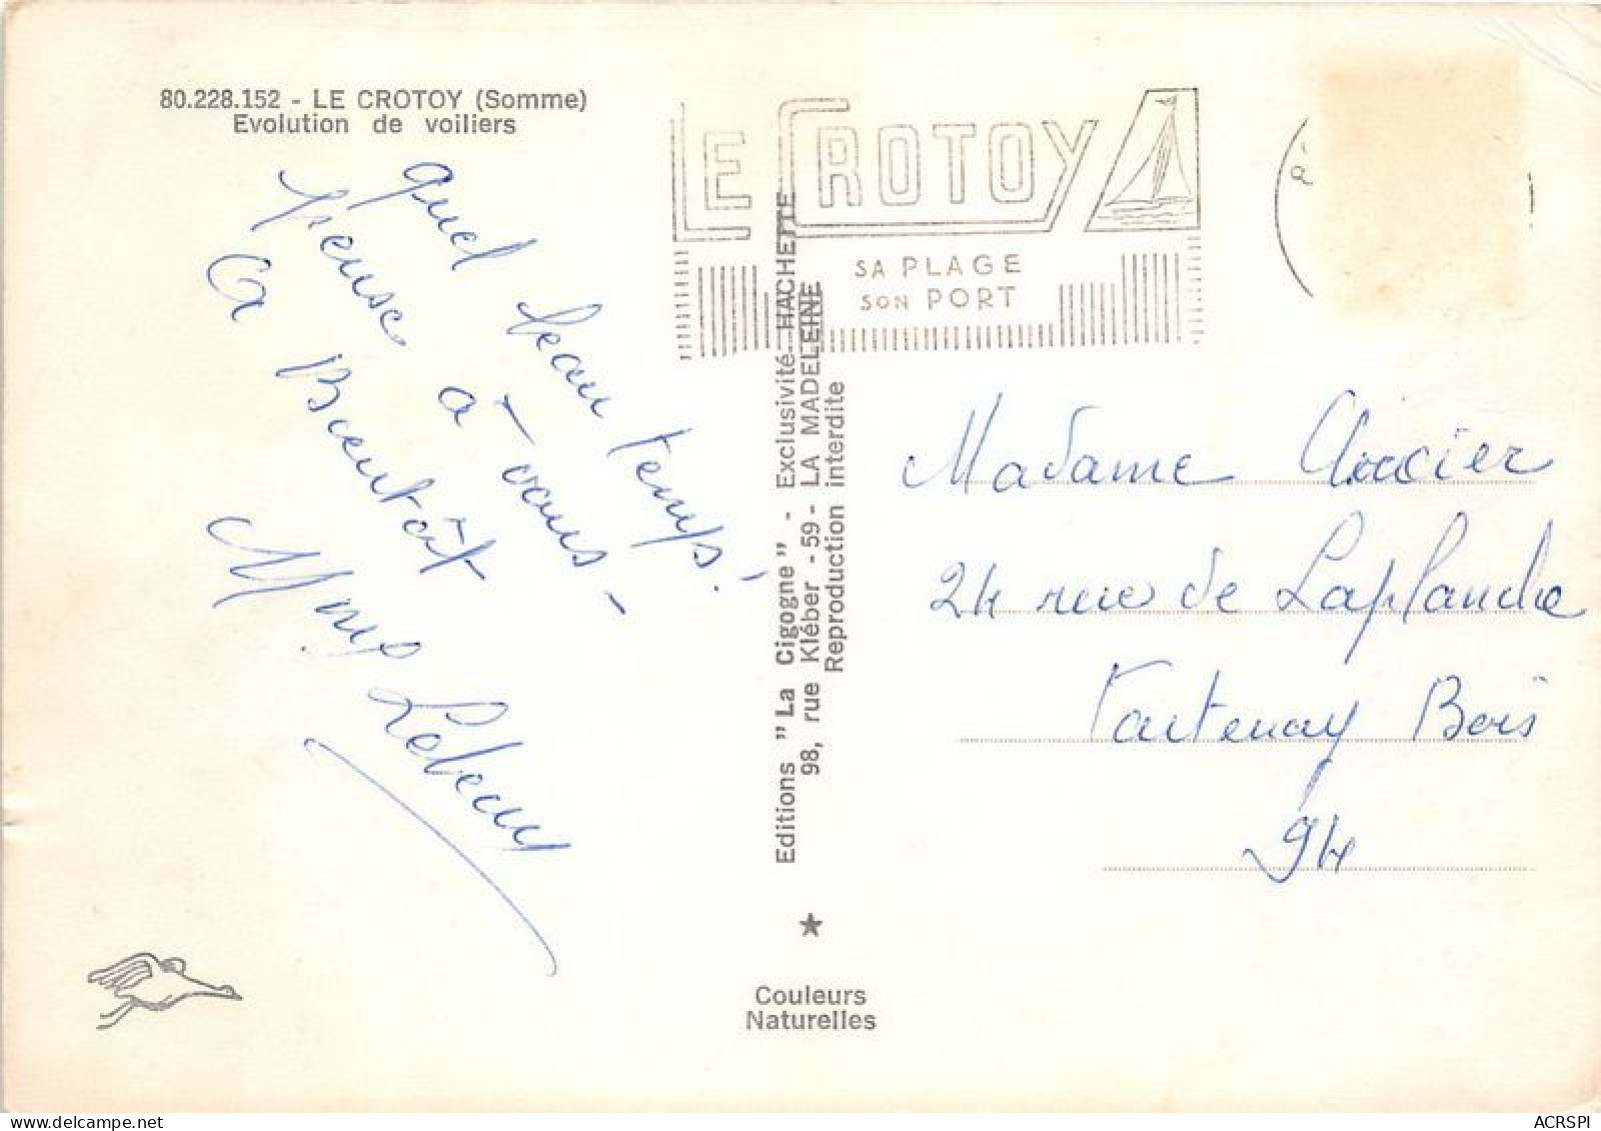 80.228.152 - LE CROTOY (Somme)
Evolution de voiliers
quel beau temps!
pense à vous -
A Bientôt
Mme Lebeau
LE CROTOY
SA PLAGE
SON PORT
Editions "La Cigogne" - Exclusivité HACHETTE
98, rue Kléber - 59 - LA MADELEINE
Reproduction interdite
Madame
24 rue de Laplanche
Fontenay Bois
94
Couleurs
Naturelles
ACRSPI